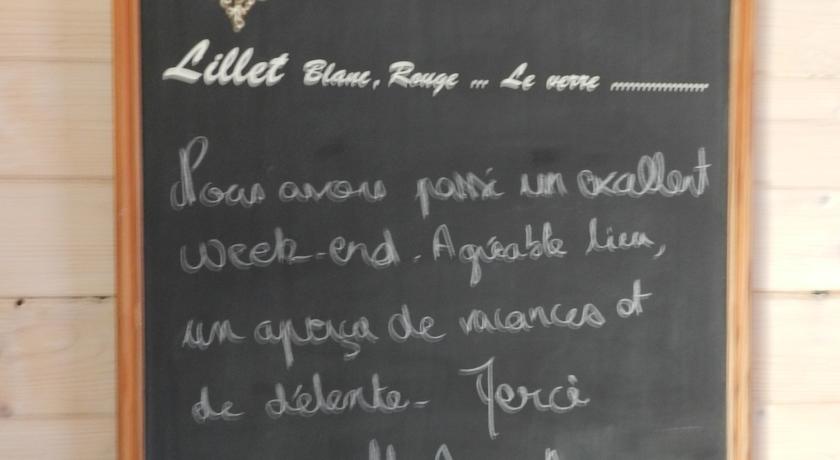 Lillet Blanc, Rouge ... Le verre ..................
Nous avons passé un excellent
week-end. Agréable lieu,
un aperçu de vacances et
de détente - Merci